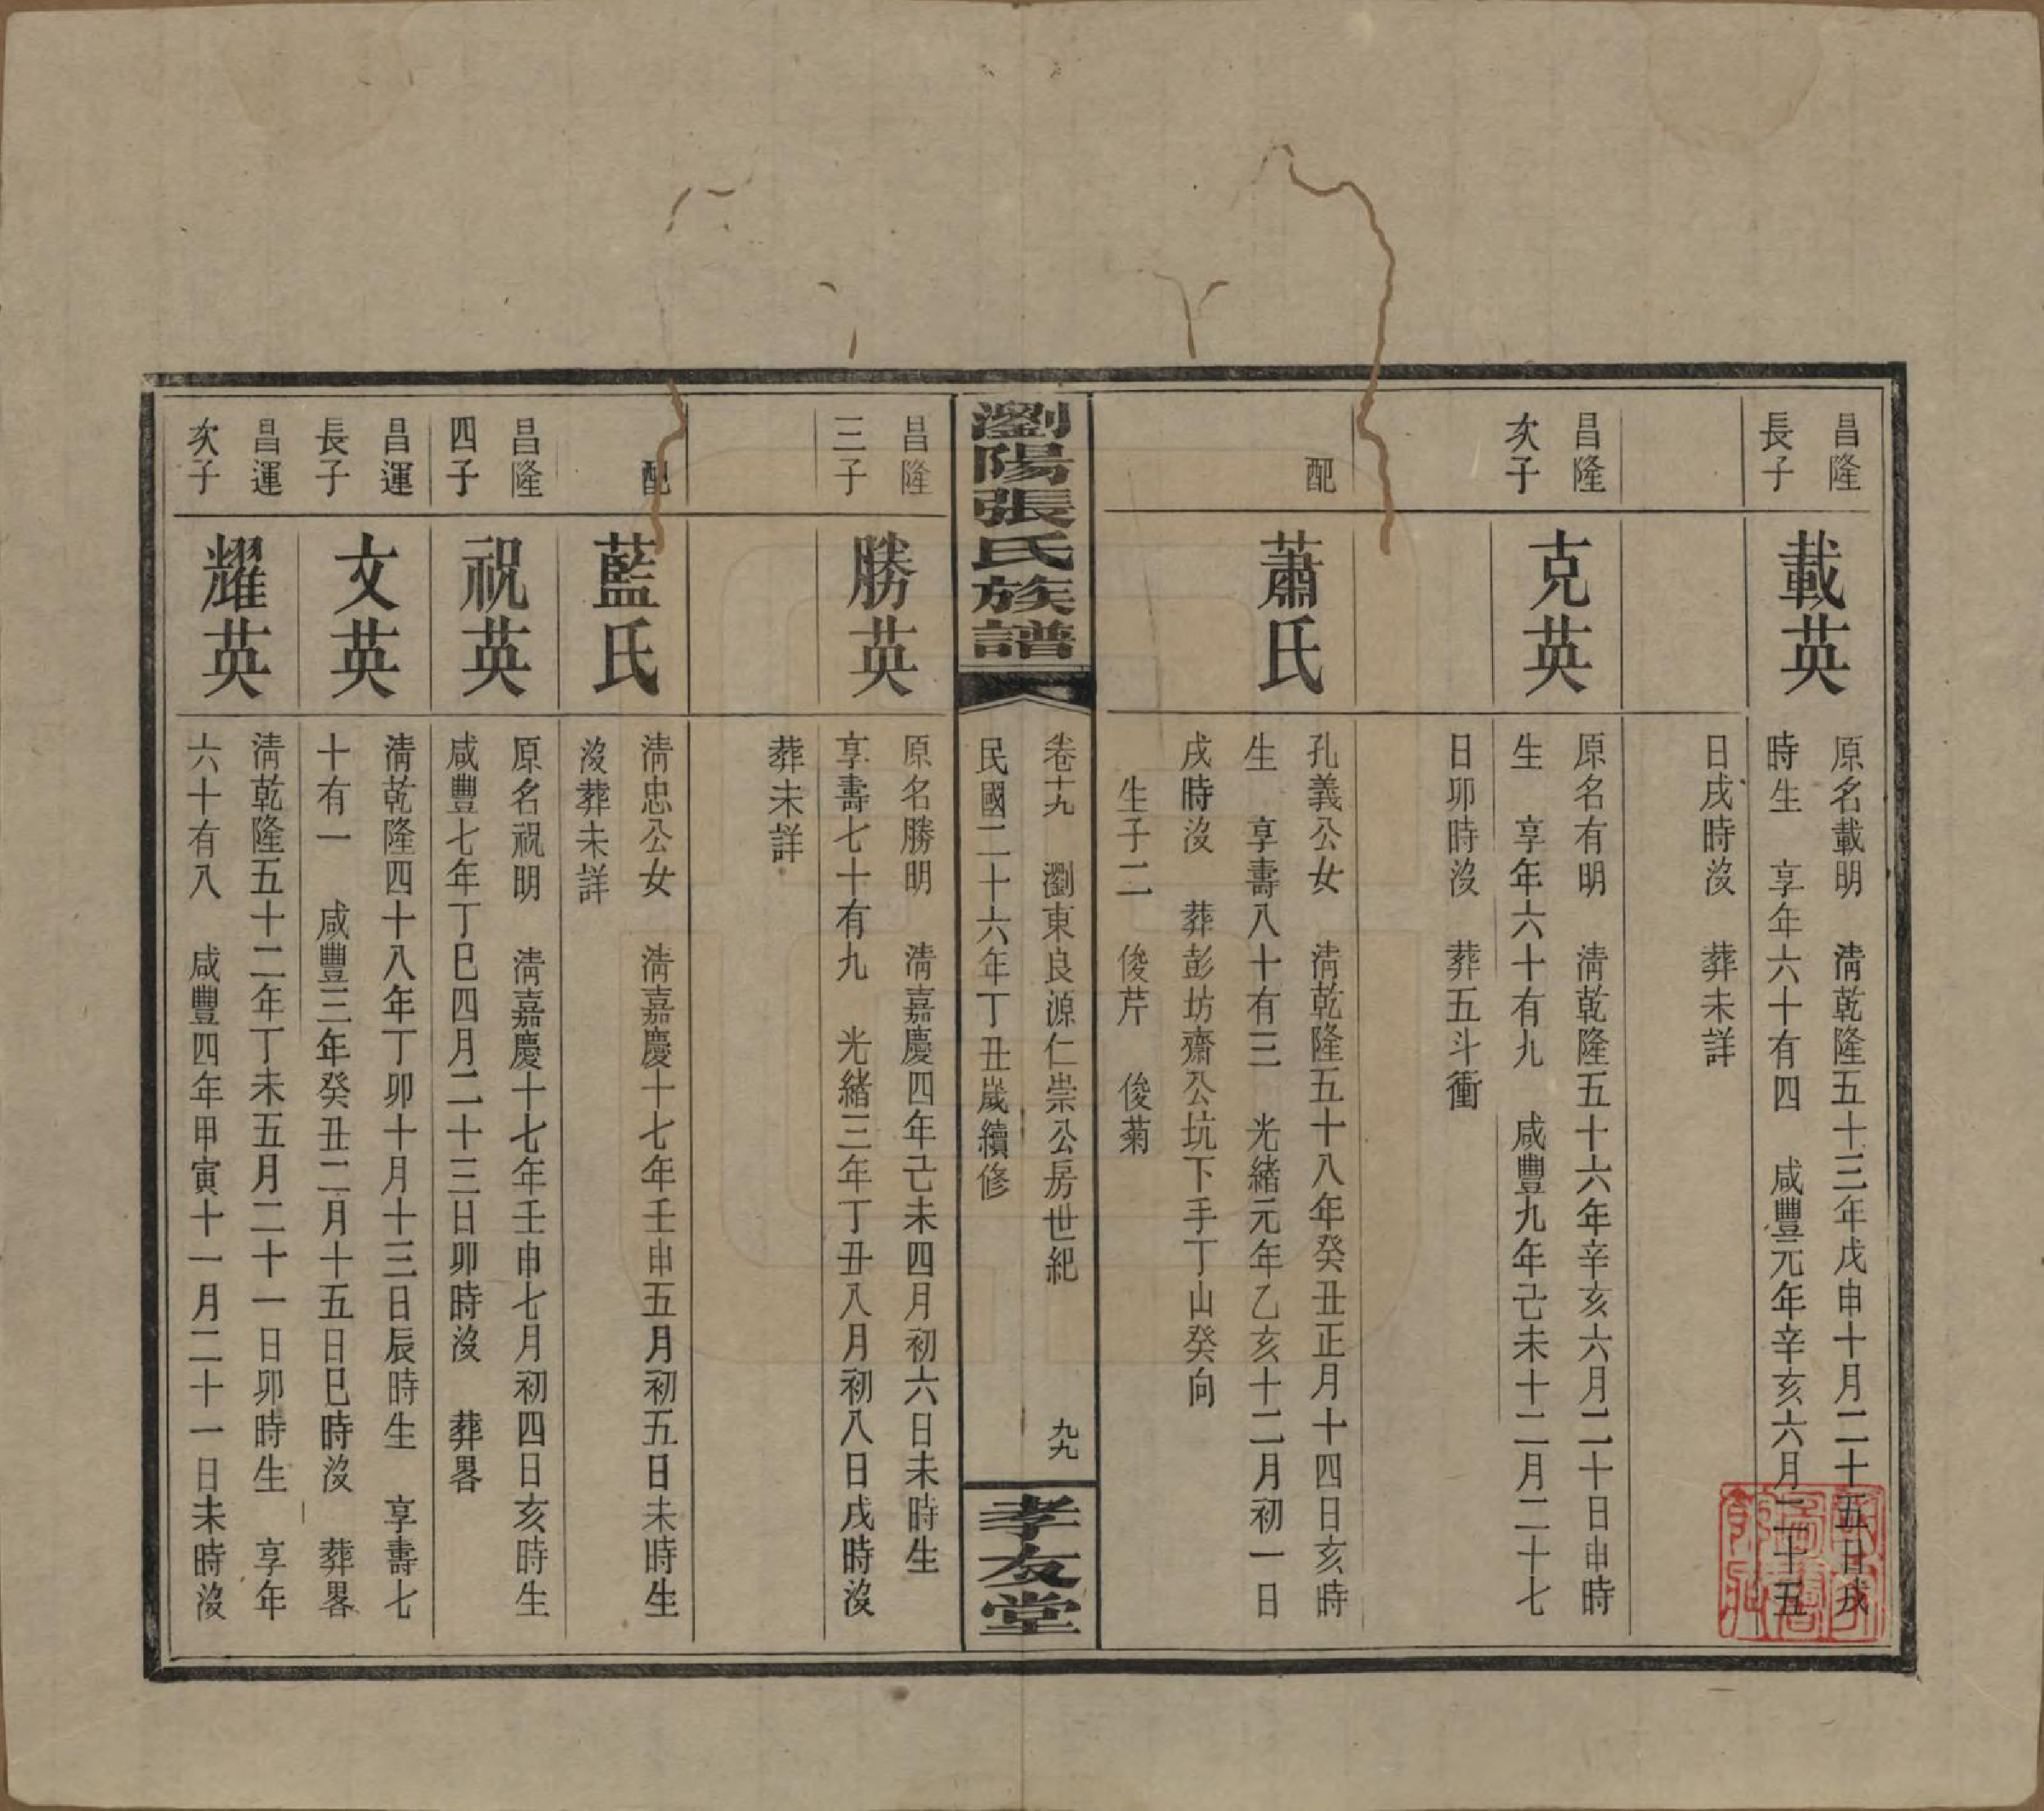 昌隆
長子
載英
原名載明　清乾隆五十三年戊申十月二十五日戌
時生　享年六十有四　咸豐元年辛亥六月二十五
日戌時沒　葬未詳
昌隆
次子
克英
原名有明　清乾隆五十六年辛亥六月二十日申時
生　享年六十有九　咸豐九年己未十二月二十七
日卯時沒　葬五斗衝
配
蕭氏
孔義公女　清乾隆五十八年癸丑正月十四日亥時
生　享壽八十有三　光緒元年乙亥十二月初一日
戌時沒　葬彭坊齋公坑下手丁山癸向
生子二　俊芹　俊菊
瀏陽張氏族譜
卷十九　瀏東良源仁崇公房世紀　九九
民國二十六年丁丑歲續修
孝友堂
昌隆
三子
勝英
原名勝明　清嘉慶四年己未四月初六日未時生
享壽七十有九　光緒三年丁丑八月初八日戌時沒
葬未詳
配
藍氏
清忠公女　清嘉慶十七年壬申五月初五日未時生
沒葬未詳
昌隆
四子
祝英
原名祝明　清嘉慶十七年壬申七月初四日亥時生
咸豐七年丁巳四月二十三日卯時沒　葬畧
昌運
長子
文英
清乾隆四十八年丁卯十月十三日辰時生　享壽七
十有一　咸豐三年癸丑二月十五日巳時沒　葬畧
昌運
次子
耀英
清乾隆五十二年丁未五月二十一日卯時生　享年
六十有八　咸豐四年甲寅十一月二十一日未時沒